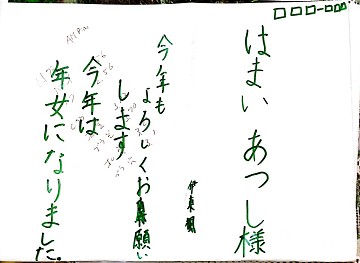 はまい あつし様
今年も
よろしくお願い
します
今年は
年女になりました。